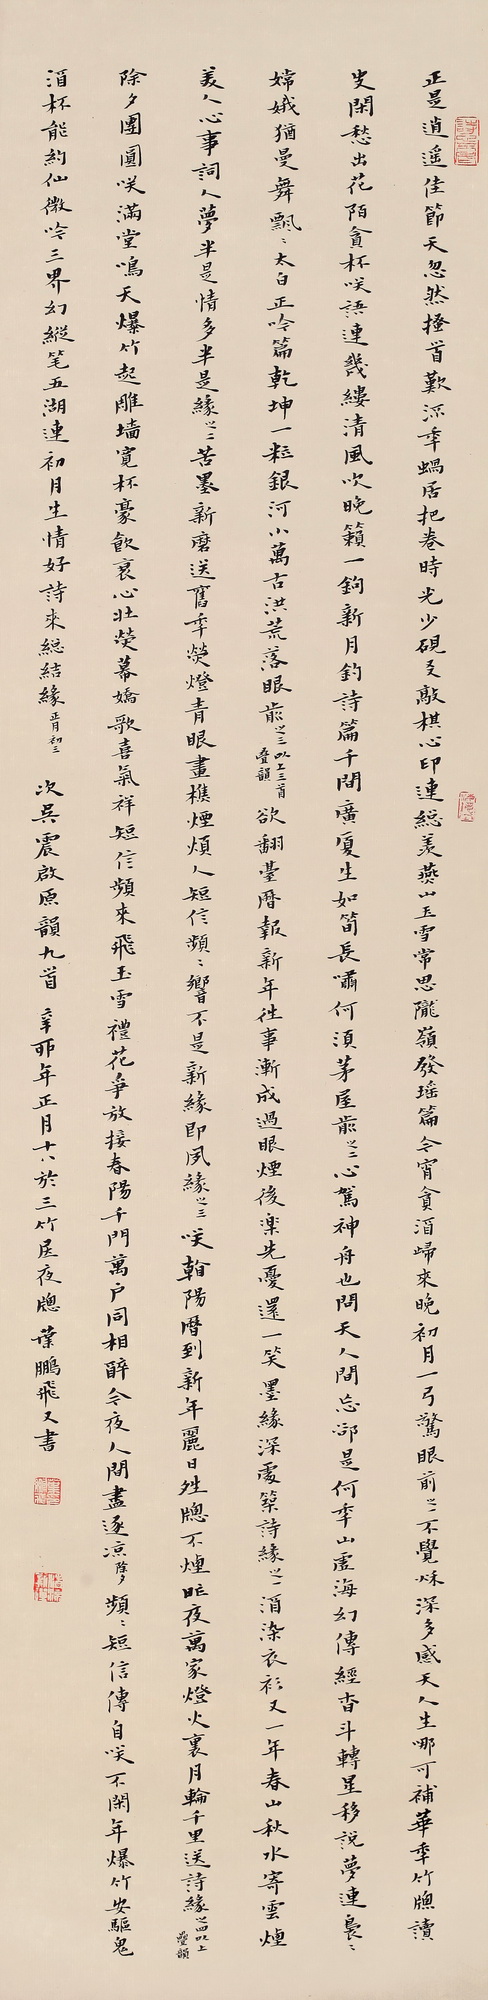 正是逍遥佳節天忽然搔首歎深季蝸居把卷時光少硯又敲棋心印連總羡燕山玉雪常思隴嶺發瑶篇今宵貪酒歸來晚初月一弓驚眼前之一不覺秋深多感天人生哪可補華季竹牕讀
史閑愁出花陌貪杯咲語連幾縷清風吹晚籟一鉤新月釣詩篇千間廣廈生如筍長嘯何須茅屋前之二心駕神舟也問天人間忘卻是何季山虛海幻傳經杳斗轉星移説夢連裊〻
嫦娥猶曼舞飄〻太白正吟篇乾坤一粒銀河小萬古洪荒落眼前之三以上三首疊韻欲翻臺曆報新年往事漸成過眼煙後樂先憂還一笑墨緣深處築詩緣之一酒染衣衫又一年春山秋水寄雲煙
美人心事詞人夢半是情多半是緣之二苦墨新磨送舊季熒燈青眼畫樵煙煩人短信頻〻響不是新緣即夙緣之三咲翰陽曆到新年麗日姓牕不煙昨夜萬家燈火裏月輪千里送詩緣之四以上疊韻
除夕團圓咲滿堂鳴天爆竹起雕墙寬杯豪飲衷心壯熒幕嬌歌喜氣祥短信頻來飛玉雪禮花爭放接春陽千門萬户同相醉今夜人間盡逐凉除夕頻〻短信傳自咲不閑年爆竹安驅鬼
酒杯能約仙微吟三界幻縱笔五湖連初月生情好詩來總結緣正月初三 次吳震啟原韻九首 辛卯年正月十八於三竹居夜牕 葉鵬飛又書